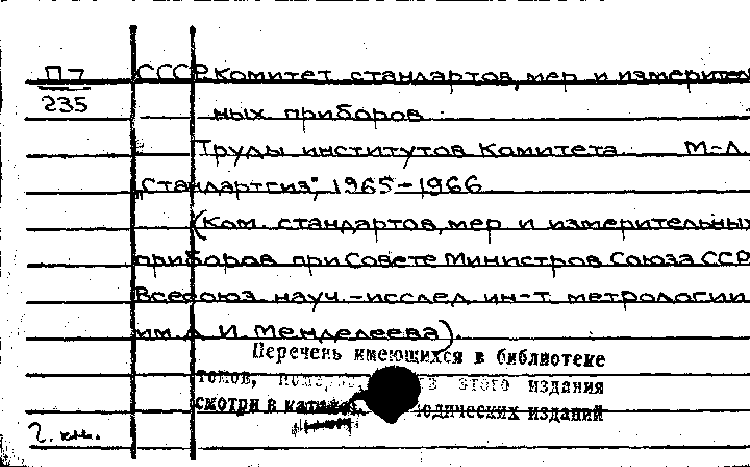 П7
235
СССР Комитет стандартов, мер и измеритель
ных приборов.
Труды институтов Комитета М-Л.
„Стандартгиз", 1965-1966
(Ком. стандартов, мер и измерительных
приборов при Совете Министров Союза ССР
Всесоюз. науч.-исслед. ин-т метрологии
им. Д. И. Менделеева).
Перечень имеющихся в библиотеке
томов, этого издания
смотри в изданий
2. кн.